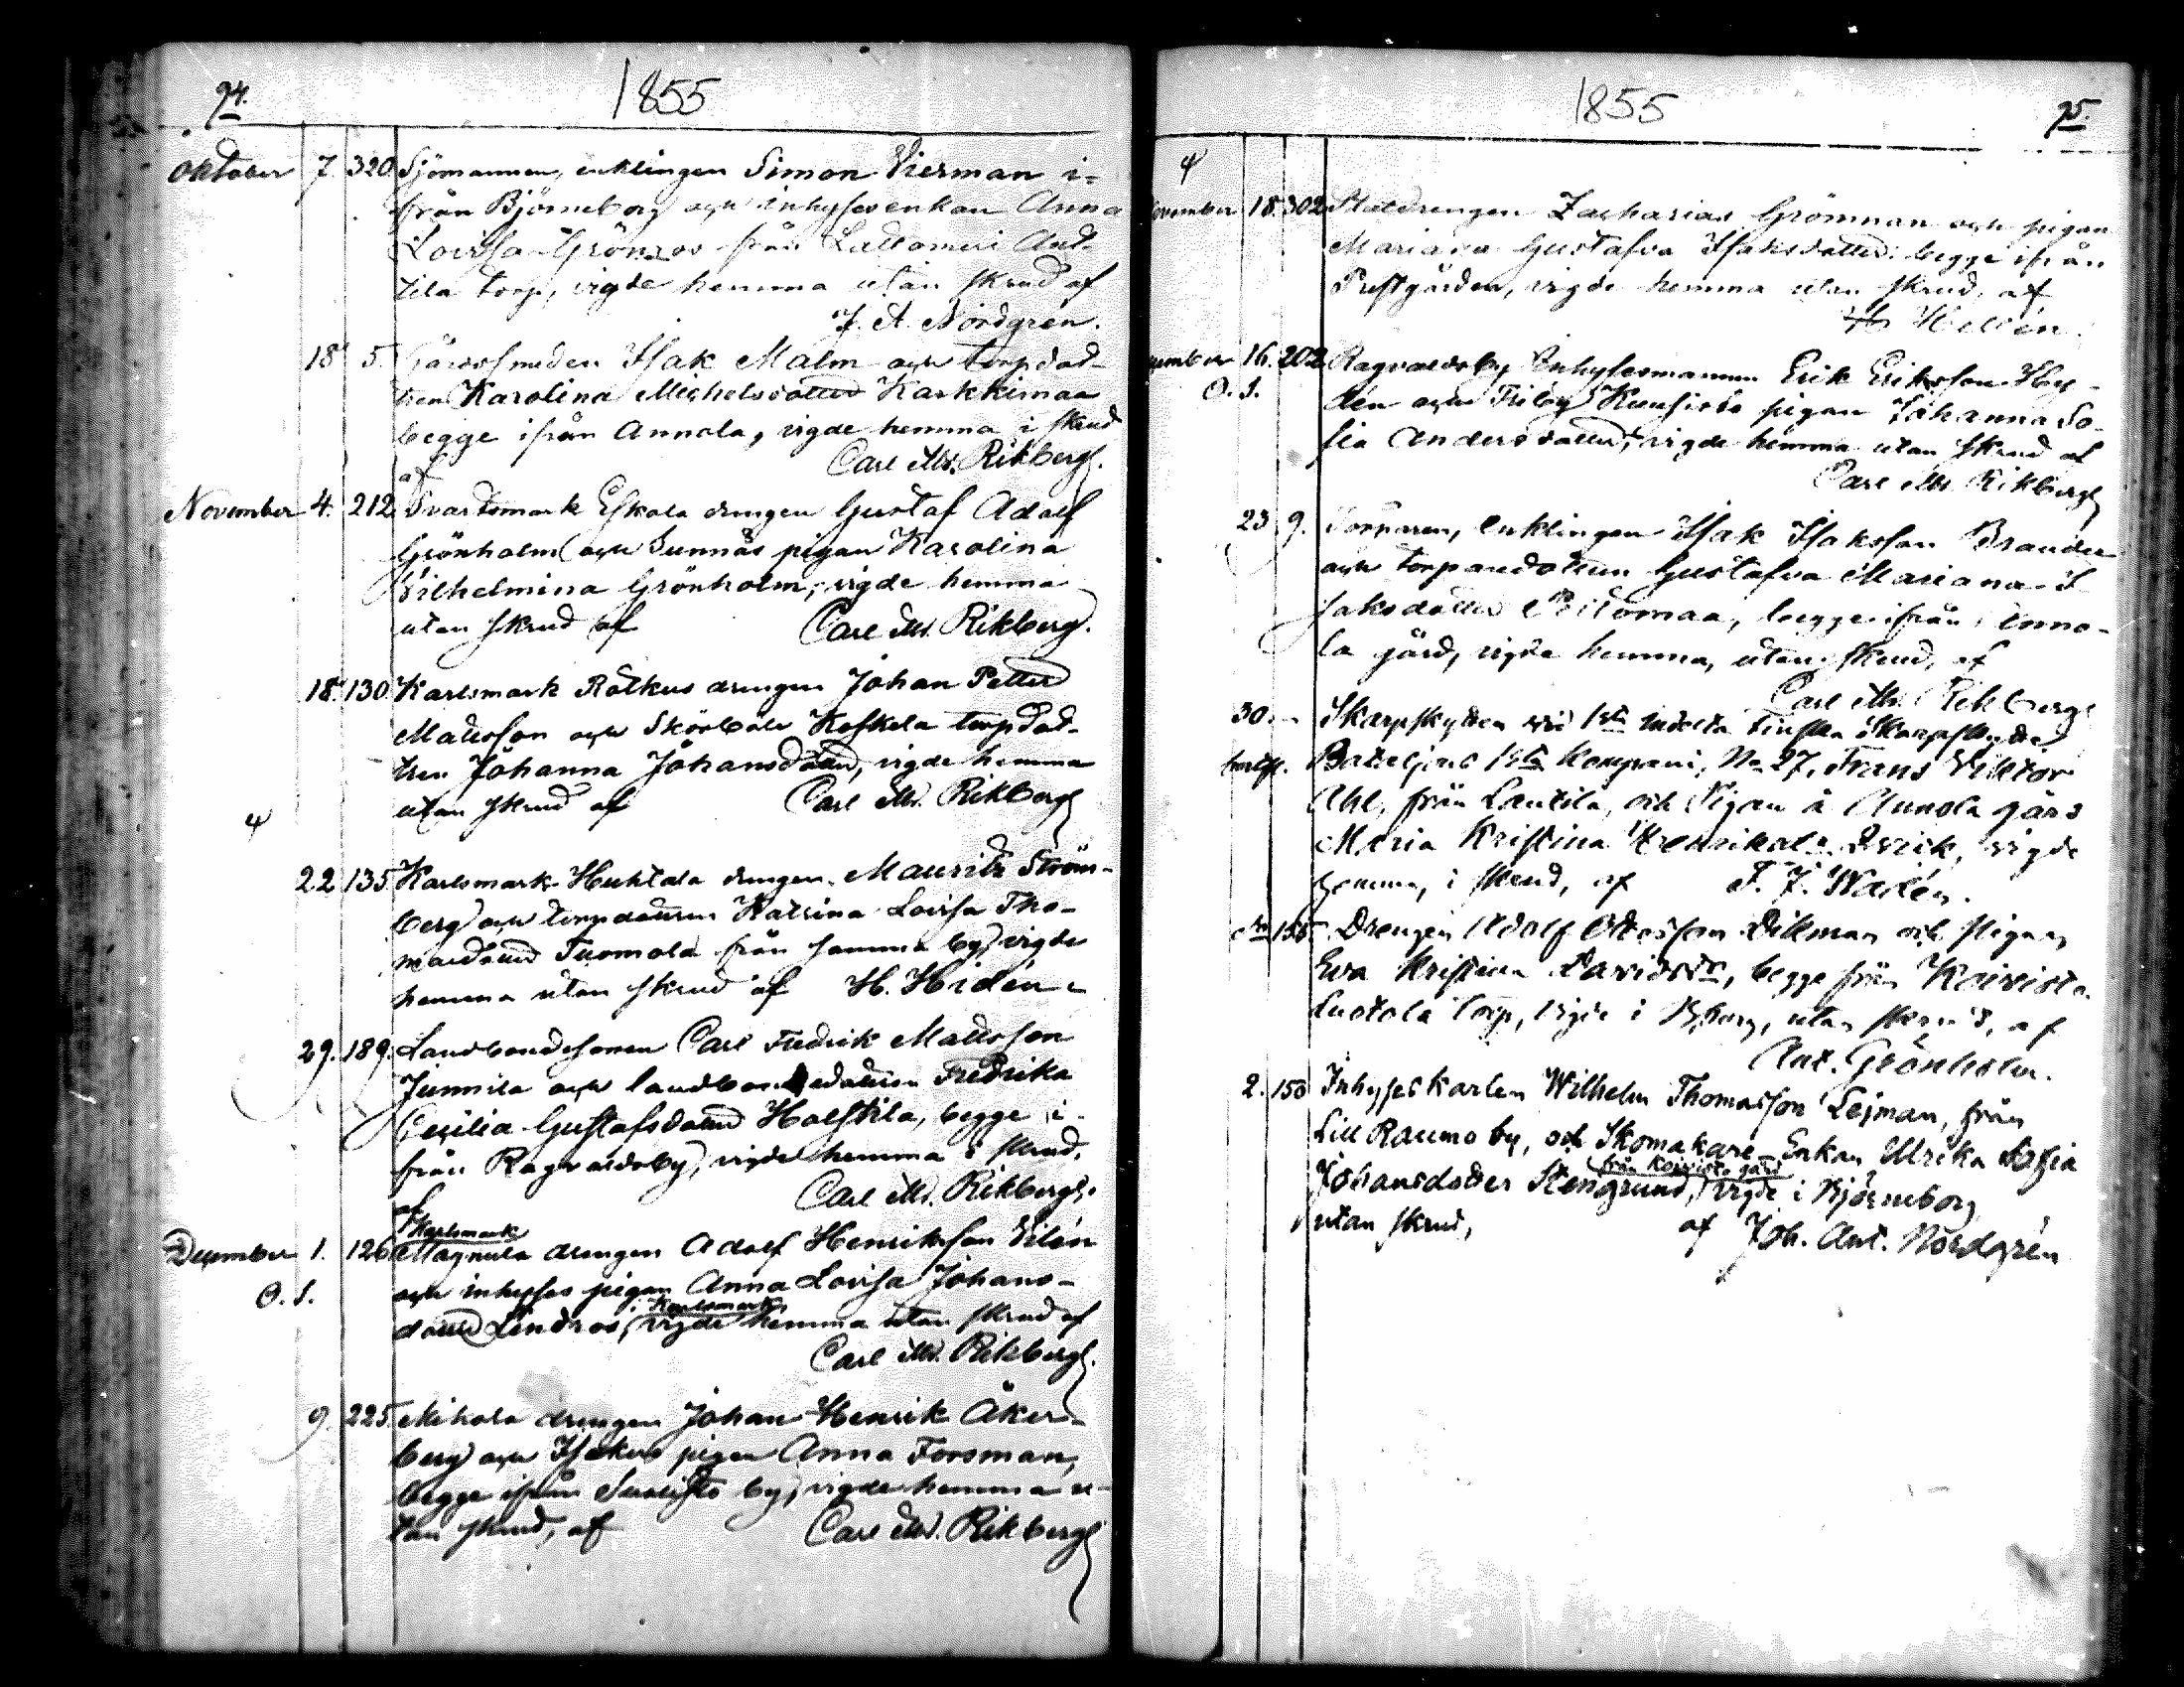 74.
1855
Oktober 7. 320. Sjömannen, enklingen Simon Vierman i=
från Björneborg och inhysesenkan Anna
Lovisa Grönroos från Lattomeri Ant-
tila torp, vigde hemma utan skrud af
J. A. Nordgren.
18 5. Gårdssmeden Isak Malm och torpdot-
tren Karolina Michelsdotter Karkkimaa
begge ifrån Annola, vigde hemma i skrud
af Carl M. Rikberg.
November 4. 212. Svartsmark Eskola drengen Gustaf Adolf
Grönholm och Sunnäs pigan Karolina
Vilhelmina Grönholm, vigde hemma
utan skrud af Carl M. Rikberg.
18. 130. Karlsmark Rotkus drengen Johan Petter
Matsson och Skörböle Koskela torpdot-
tren Johanna Johansdotter, vigde hemma
utan skrud af Carl M. Rikberg
22 135. Karlsmark Huhtala drengen Mauritz Ström-
berg och torpdottren Katrina Lovisa Tho-
masdotter Tuomola från samma by, vigde
hemma utan skrud af H. Hidén.
29. 189. Landbondesonen Carl Fredrik Matsson
Junnila och landbondedottren Fredrika
Cecilia Gustafsdotter Holstila, begge i-
från Ragvaldsby, vigde hemma i skrud,
af Carl M. Rikberg.
Karlsmark
December 1. 126 Magnula drengen Adolf Henriksson Vilén
O. S. och inhyses pigan Anna Lovisa Johans-
Karlsmark
dotter Lindros, vigde hemma utan skrud af
Carl M. Rikberg.
9. 225. Mikola drengen Johan Henrik Åker-
berg och Isakus pigan Anna Forsman,
begge ifrån by, vigde hemma u-
tan skrud, af Carl M. Rikberg
1855
75.
November 18. 302. Statdrengen Zacharias Grönman och pigan
Mariana Gustafva Isaksdotter begge ifrån
Prestgården, vigde hemma utan skrud, af
H. Hidén.
December 16. 202. Ragvaldsby Inhysesmannen Erik Eriksson Hey-
O. S. dén och Friby Kuusisto pigan Johanna So-
fia Andersdotter, vigde hemma utan skrud af
Carl M. Rikberg
23 9. Torparen, enklingen Isak Isaksson Brander
och torparedottren Gustafva Mariana I-
saksdotter Pitomaa, begge ifrån Anno-
la gård, vigde hemma, utan skrud, af
Carl M. Rikberg
30. - Skarpskytten vid 1sta indelta finska Skarpskytte
Bataljons 1sta Kompani, No 27, Frans Viktor
Ahl, från Lautila, och Pigan å Annola gård
Maria Kristina Henriksdr Qvick, vigde
hemma, i skrud, af F. J. Wadén.
155. Drengen Adolf Ottosson Dikman och pigan
Eva Kristina Davidsdr, begge från Koivisto
Luotola torp, vigde i Bjborg, utan skrud, af
Ant. Grönholm.
2. 150 Inhyseskarlen Wilhelm Thomasson Lejman, från
Lill Raumo by, och Skomakare Enkan Ulrika Sofia
från Koivisto gård
Johansdotter Stengrund, vigde i Björneborg
utan skrud, af Joh. Ant. Nordgrén